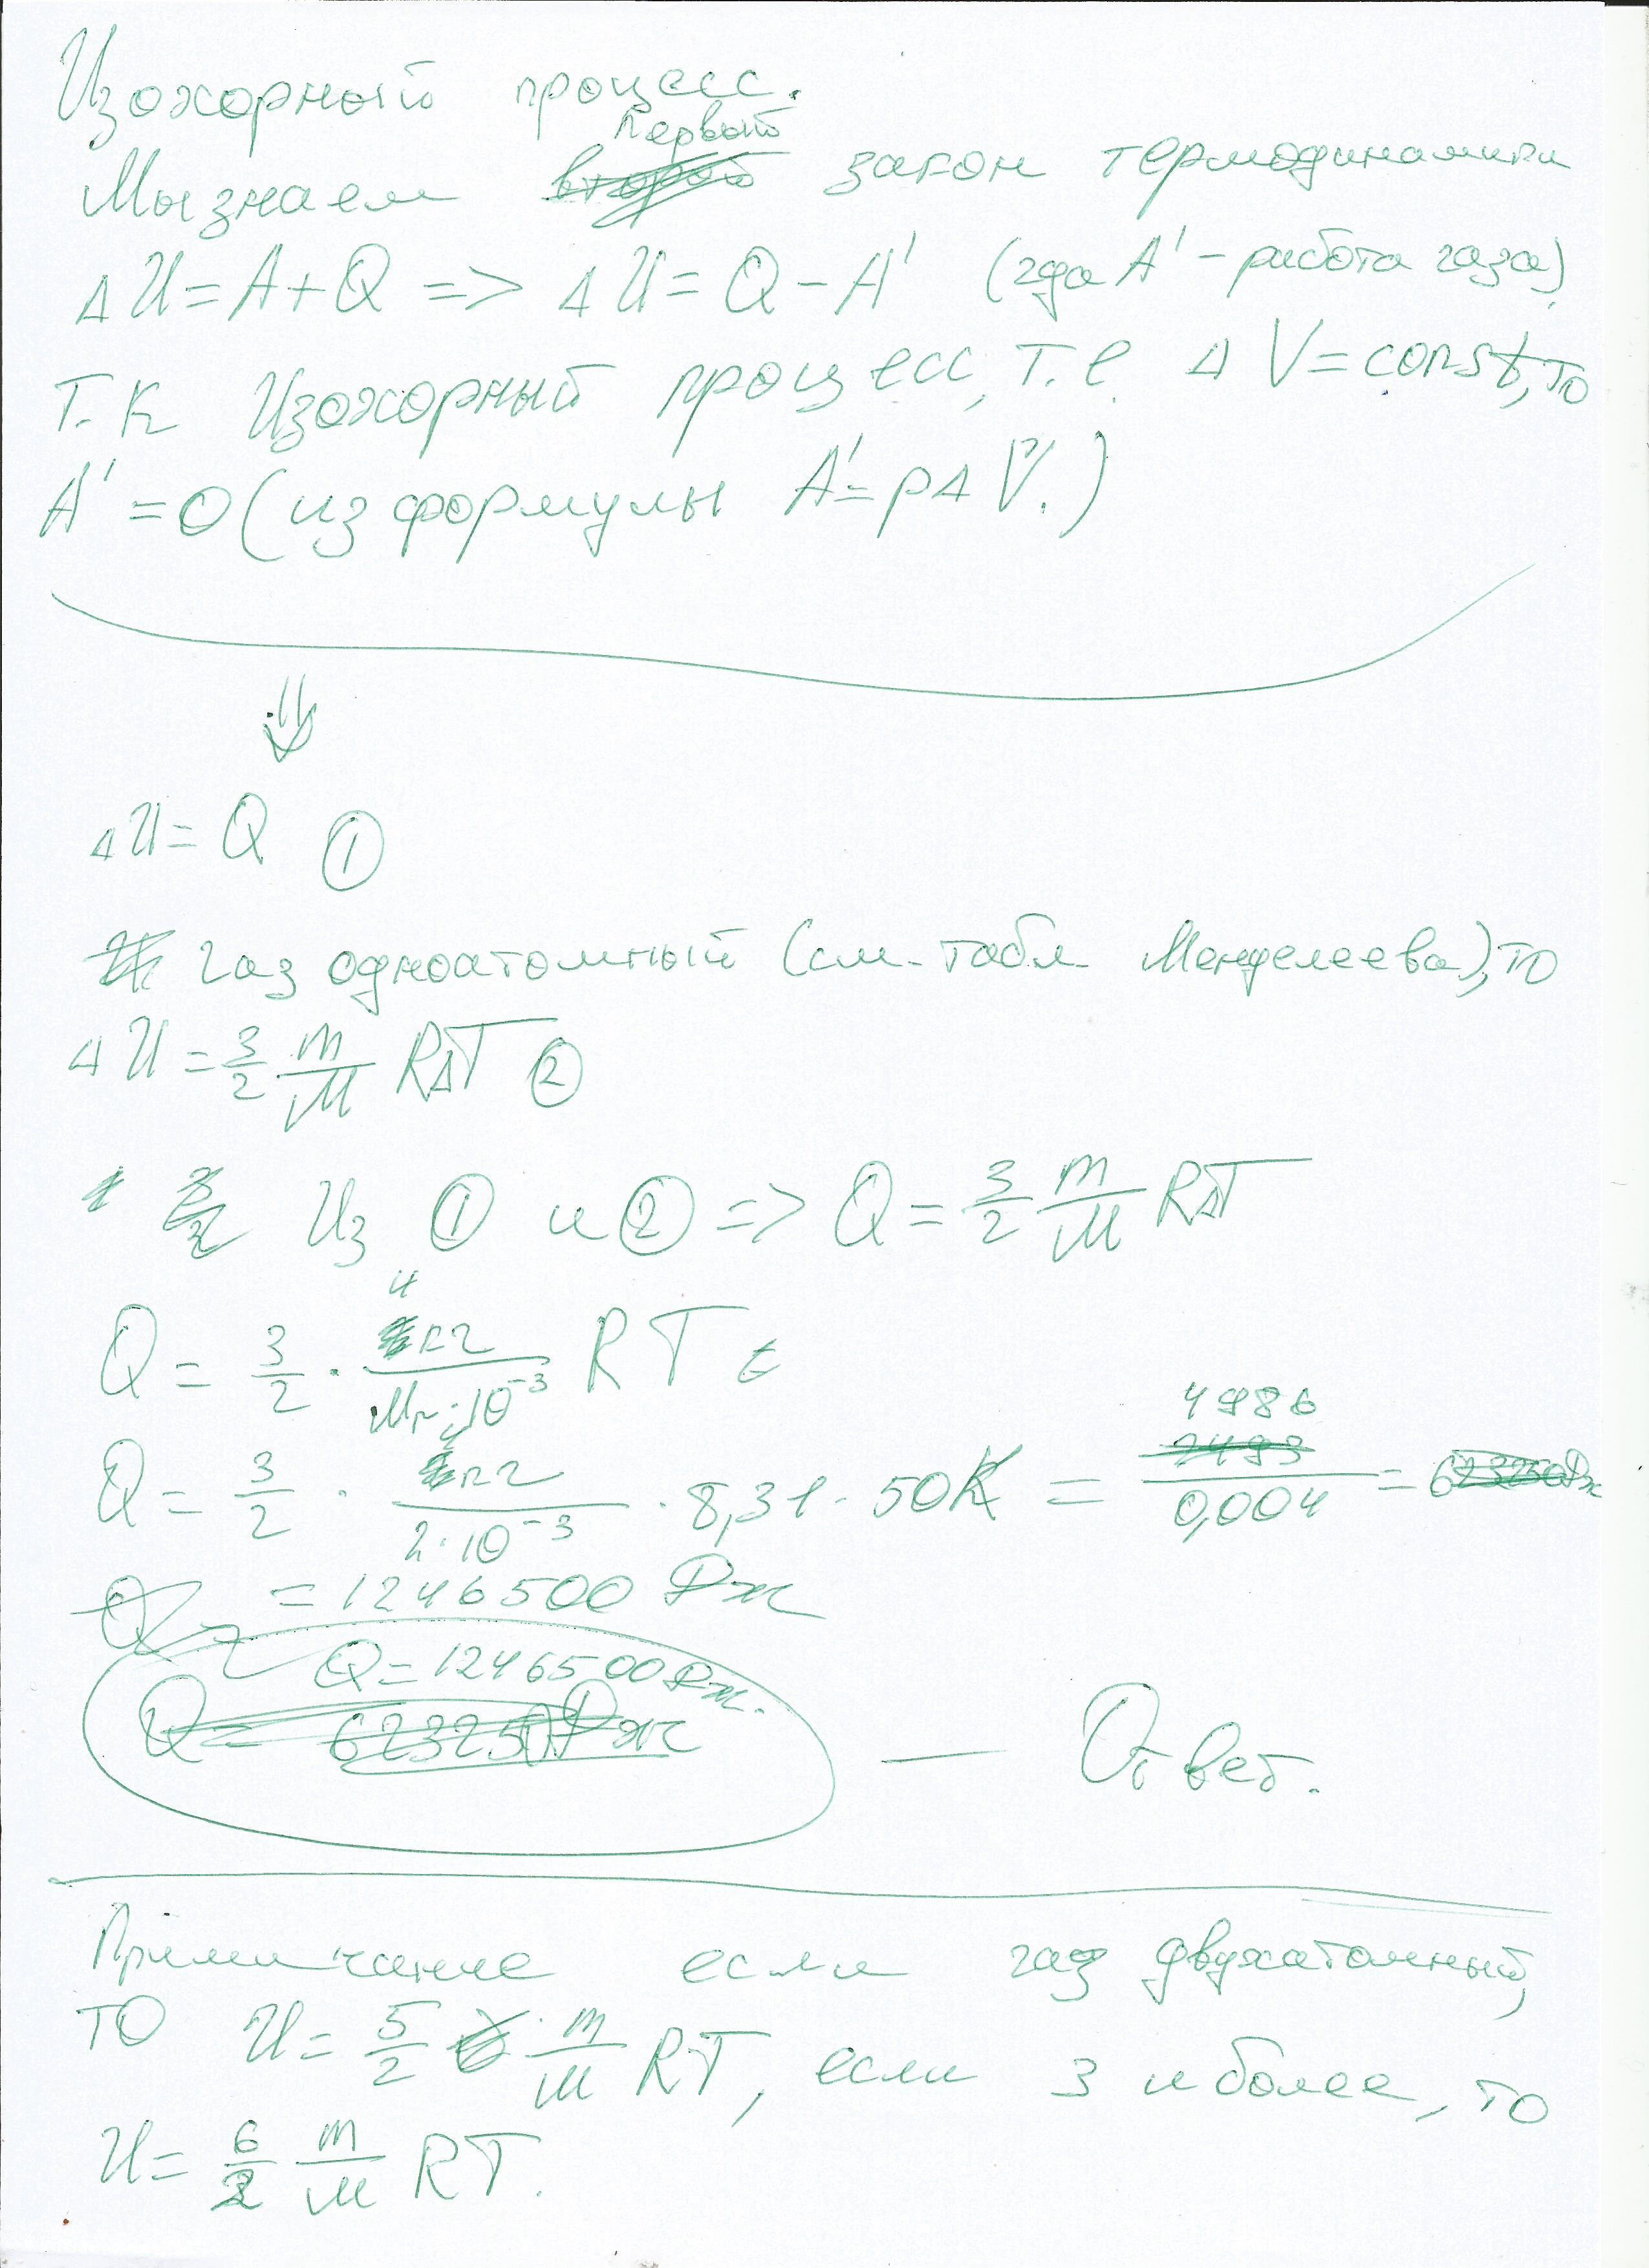 Изохорный процесс.
первый
Мы знаем второй закон термодинамики
ΔU = A + Q => ΔU = Q - A' (где A' - работа газа)
т.к Изохорный процесс, т.е. Δ V = const, то
A' = 0 (из формулы A' = pΔV.)
⇓
ΔU = Q ①
газ одноатомный (см. табл Менделеева), то
ΔU = 3/2 m/M RΔT ②
Из ① и ② => Q = 3/2 m/M RΔT
Q = 3/2 · 4 кг/Mr·10⁻³ RT
Q = 3/2 · 4 кг/2·10⁻³ · 8,31 · 50K = 4986/0,004 =
= 1246500 Дж
Q = 1246500 Дж.
Q = 623250 Дж — Ответ.
Примичание если газ двухатомный,
то U = 5/2 · m/M RT, если 3 и более, то
U = 6/2 m/M RT.